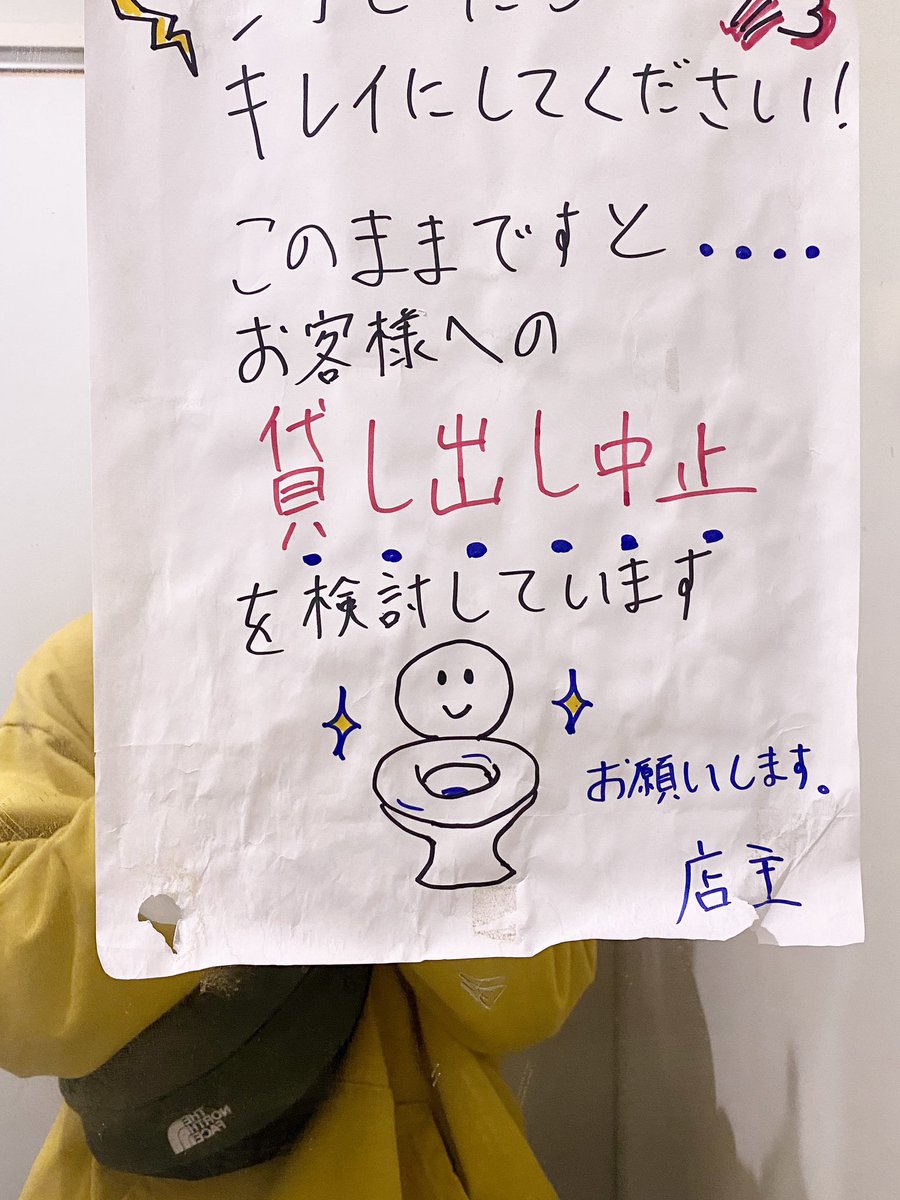 キレイにしてください!
このままですと・・・・
お客様への
貸し出し中止
を検討しています
お願いします。
店主
THE
NORTH
FACE